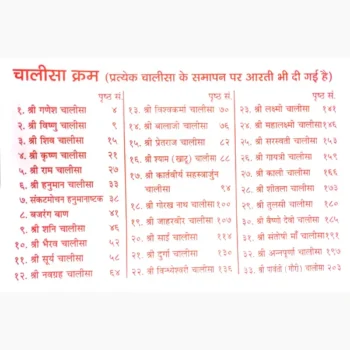 चालीसा क्रम (प्रत्येक चालीसा के समापन पर आरती भी दी गई है)
पृष्ठ सं.
१. श्री गणेश चालीसा ४
२. श्री विष्णु चालीसा ९
३. श्री शिव चालीसा १५
४. श्री कृष्ण चालीसा २१
५. श्री राम चालीसा २७
६. श्री हनुमान चालीसा ३३
७. संकटमोचन हनुमानाष्टक ३८
८. बजरंग बाण ४१
९. श्री शनि चालीसा ४६
१०. श्री भैरव चालीसा ५२
११. श्री सूर्य चालीसा ५८
१२. श्री नवग्रह चालीसा ६४
पृष्ठ सं.
१३. श्री विश्वकर्मा चालीसा ७०
१४. श्री बालाजी चालीसा ७६
१५. श्री प्रेतराज चालीसा ८२
१६. श्री श्याम (खाटू) चालीसा ८८
१७. श्री कार्तवीर्य सहस्त्रार्जुन
चालीसा ९४
१८. श्री गोरख नाथ चालीसा १००
१९. श्री जाहरवीर चालीसा १०७
२०. श्री साईं चालीसा ११४
२१. श्री दुर्गा चालीसा १३०
२२. श्री विन्ध्येश्वरी चालीसा १३६
पृष्ठ सं.
२३. श्री लक्ष्मी चालीसा १४१
२४. श्री महालक्ष्मी चालीसा १४६
२५. श्री सरस्वती चालीसा १५३
२६. श्री गायत्री चालीसा १५९
२७. श्री काली चालीसा १६६
२८. श्री शीतला चालीसा १७३
२९. श्री तुलसी चालीसा १८०
३०. श्री वैष्णो देवी चालीसा १८५
३१. श्री संतोषी माँ चालीसा १९१
३२. श्री अन्नपूर्णा चालीसा १९७
३३. श्री पार्वती (गौरी) चालीसा २०३